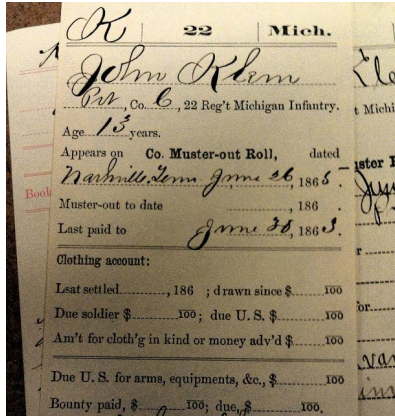 K 22 Mich.
John Klem
Pvt, Co. C, 22 Reg't Michigan Infantry.
Age 13 years.
Appears on Co. Muster-out Roll, dated
Nashville, Tenn June 26, 1865.
Muster-out to date , 186 .
Last paid to June 30, 1863.
Clothing account:
Lsat settled , 186 ; drawn since $ 100
Due soldier $ 100; due U. S. $ 100
Am't for cloth'g in kind or money adv'd $ 100
Due U. S. for arms, equipments, &c., $ 100
Bounty paid, $ 100; due, $ 100
Book
t Michi
uster